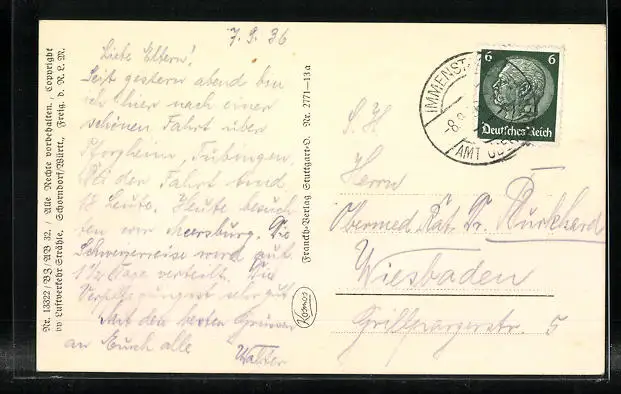 7.9.36
Liebe Eltern!
Seit gestern abend bin
ich hier nach einer
schönen Fahrt über
Pforzheim, Tübingen.
Bei der Fahrt sind
18 Leute. Heute besuch
ten wir Meersburg. Die
Schweizerreise wird auf
1 1/2 Tage verteilt. Die
Verpflegung ist sehr gut
Mit den besten Grüssen
an Euch alle
Walter
Nr. 13322/BJ/AB 32. / Alle Rechte vorbehalten., Copyright
by Luftverkehr Strähle, Schorndorf/Württ., Freig. d. R. L. M.
Franckh-Verlag Stuttgart-O. Nr. 2771-13a
Kosmos
IMMENST
-8.9.
AMT
6 6
Deutsches Reich
S. H
Herrn
Obermed. Rat. Dr. Burkhard
Wiesbaden
Grillparzerstr. 5